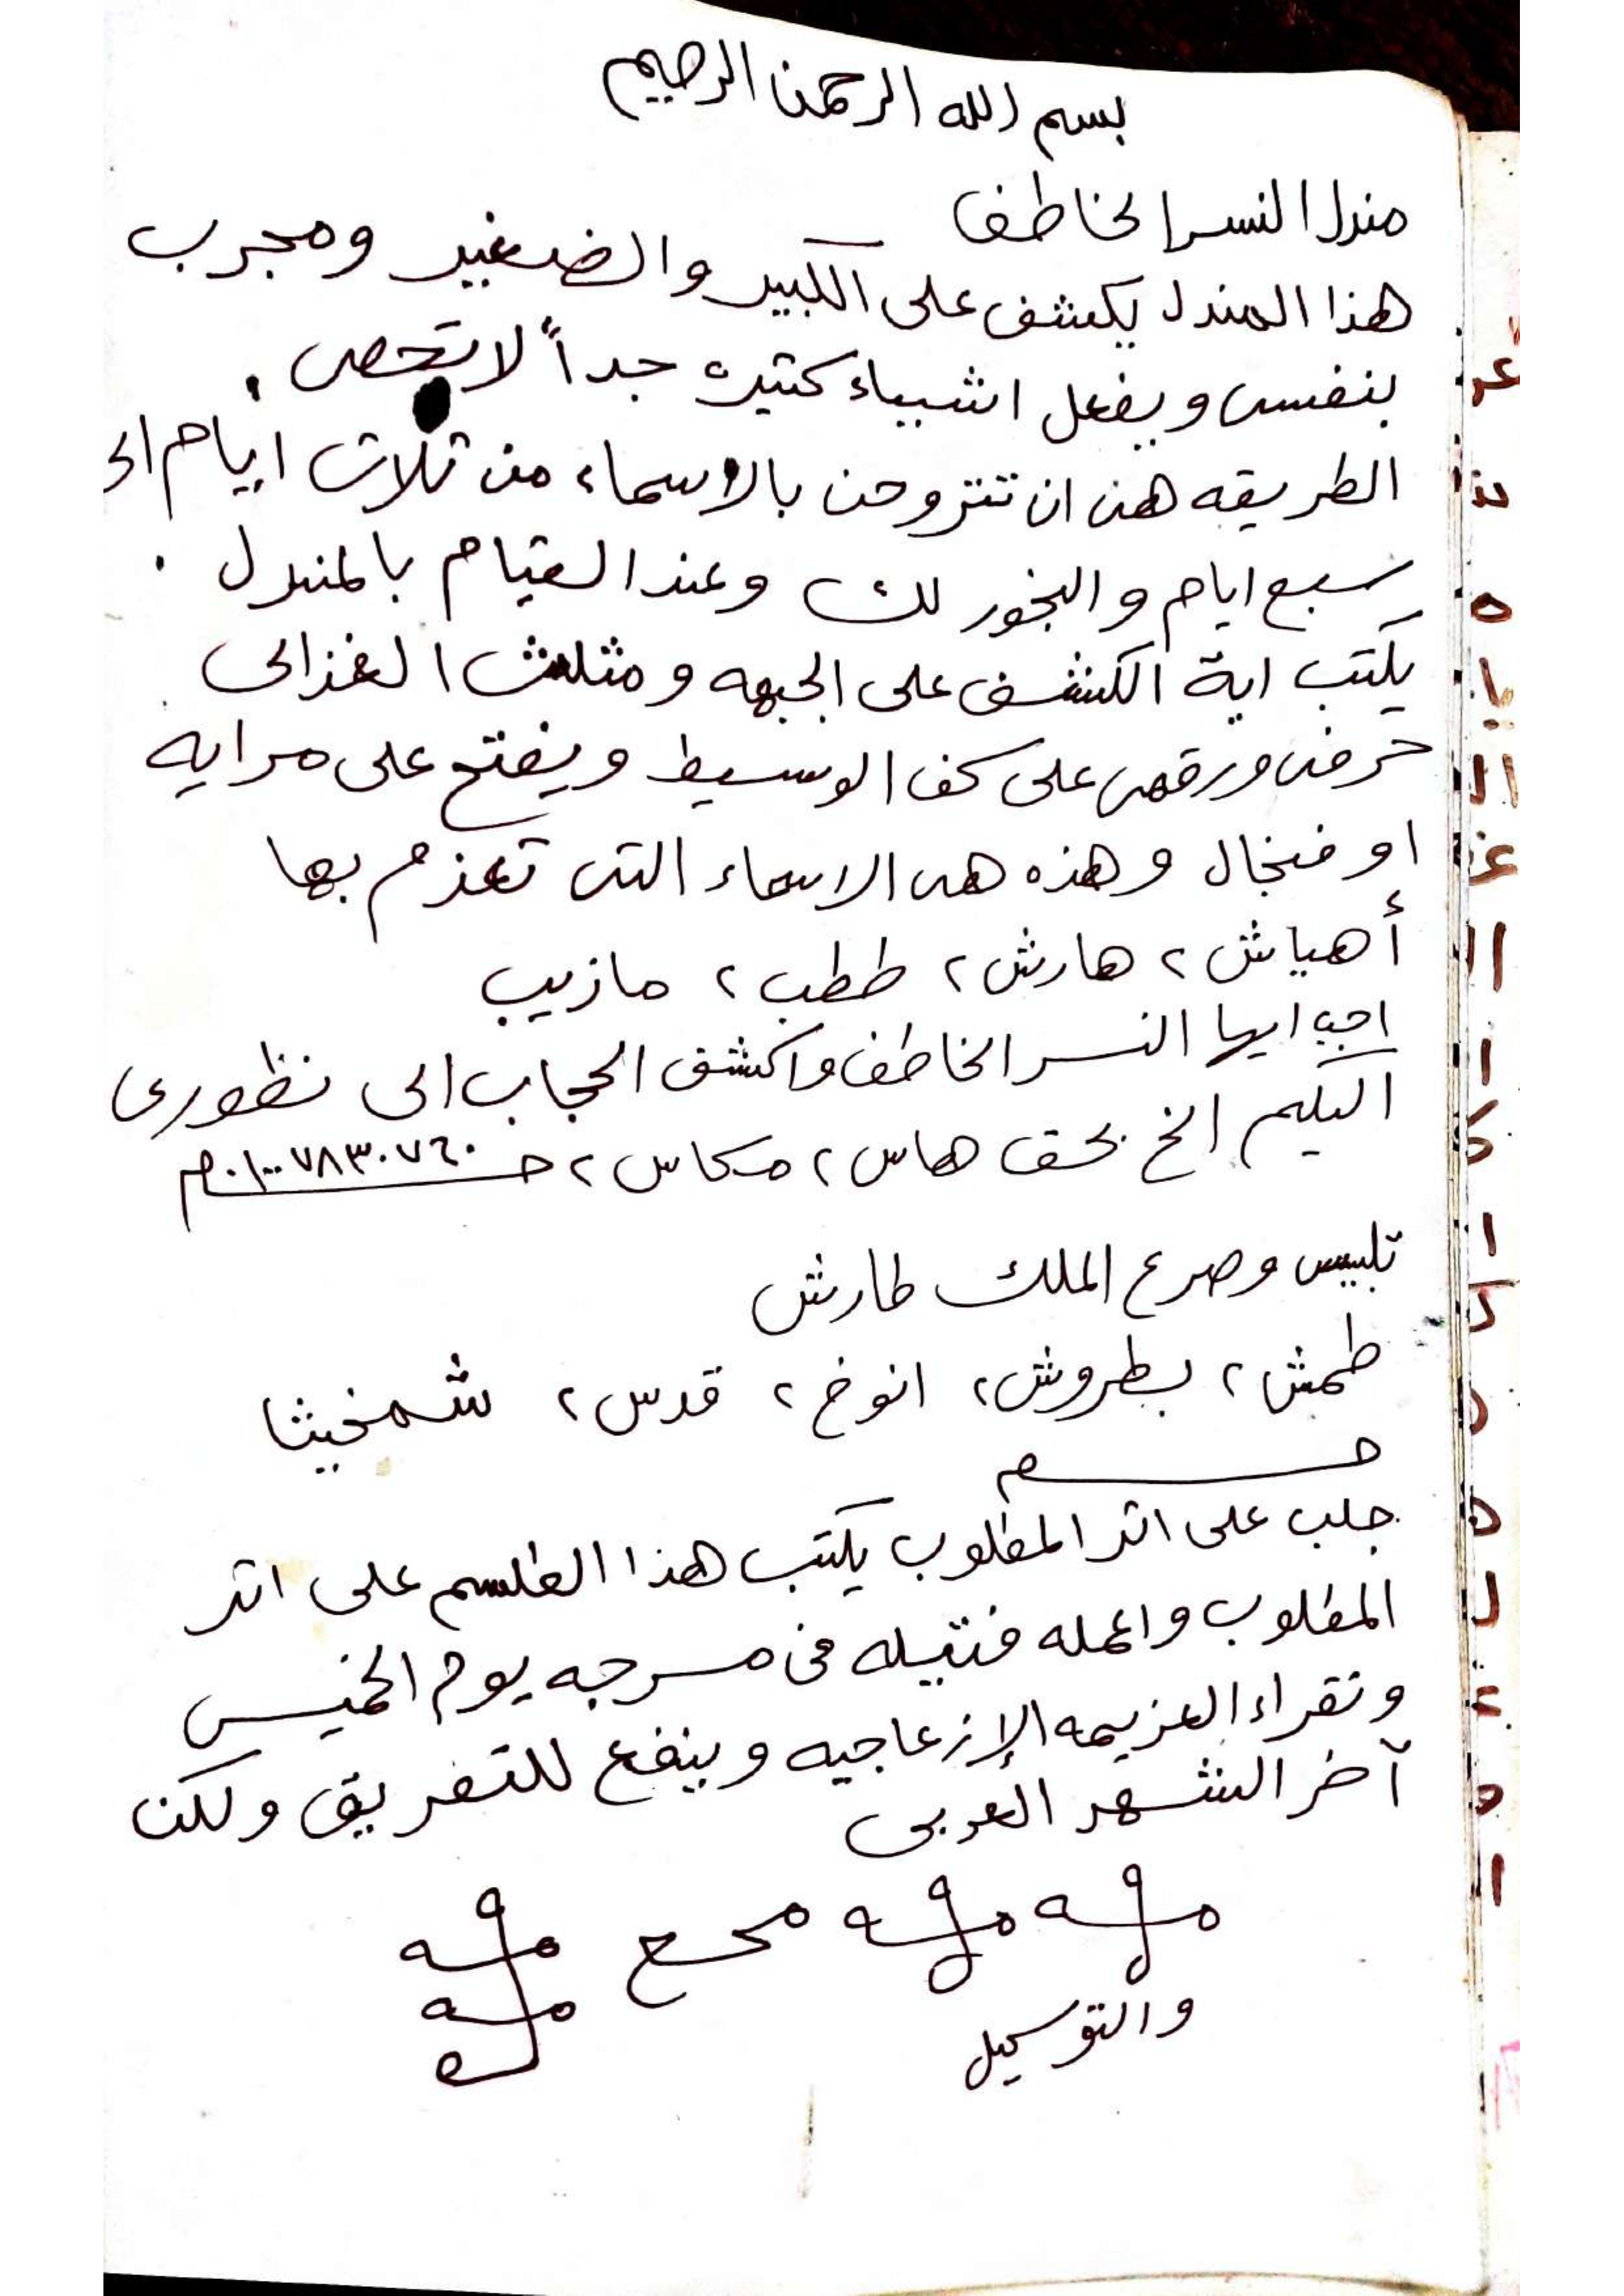 بسم الله الرحمن الرحيم
مندل النسر الخاطف
هذا المندل يكشف على الكبير والصغير ومجرب
بنفسى ويفعل اشياء كتيره جداً لا تحصى .
الطريقه هى ان تتروحن بالاسماء من ثلاث ايام الى
سبع ايام والبخور لك وعند القيام بالمندل .
يكتب اية الكشف على الجبهه ومثلث الغزالى
حرفى ورقمى على كف الوسيط ويفتح على مرايه
او فنجال وهذه هى الاسماء التى تعزم بها
أهياش ٢ هارش ٢ طظب ٢ مازيب
اجب ايها النسر الخاطف واكشف الحجاب الى نظورى
اليكم الخ بحق هاس ٢ مكاس ٢ ٠١٠٠٧٨٣٠٧٦٠
تلبيس وصرع الملك طارش
طمش ٢ بطروش ٢ انوخ ٢ قدس ٢ شمخيثا
جلب على اتر المطلوب يكتب هذا الطلسم على اتر
المطلوب واعمله فتيله فى مسرجه يوم الخميس
وتقراء العزيمه الإزعاجيه وينفع للتفريق ولكن
آخر الشهر العربى
محع
والتوكيل